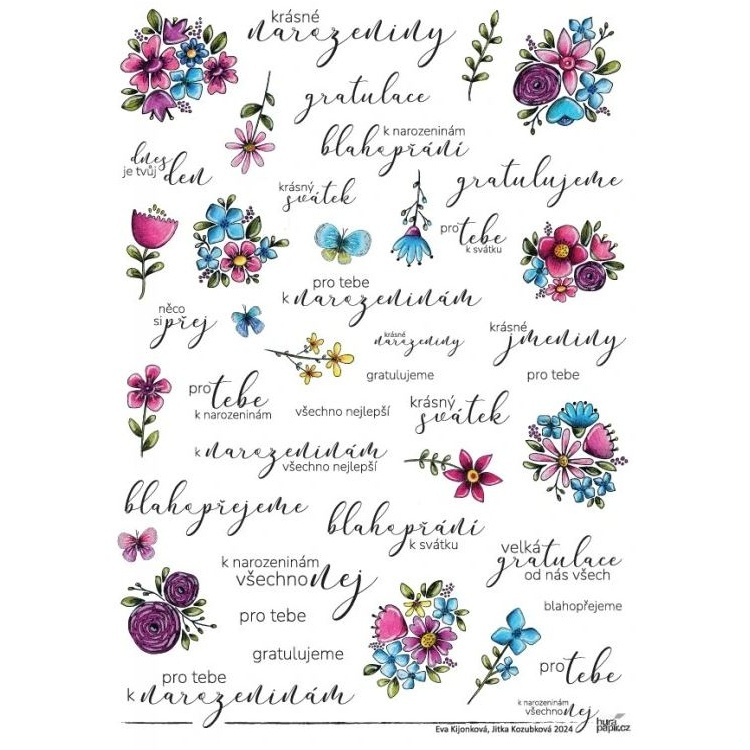 krásné
narozeniny
gratulace
k narozeninám
blahopřání
dnes
je tvůj den
krásný
svátek
gratulujeme
pro tebe
k svátku
pro tebe
k narozeninám
něco
si přej
krásné
narozeniny
krásné
jmeniny
gratulujeme
pro tebe
pro tebe
k narozeninám
všechno nejlepší
krásný
svátek
k narozeninám
všechno nejlepší
blahopřejeme
blahopřání
k svátku
velká
gratulace
od nás všech
k narozeninám
všechno nej
blahopřejeme
pro tebe
gratulujeme
pro tebe
pro tebe
k narozeninám
k narozeninám
všechno nej
Eva Kijonková, Jitka Kozubková 2024
hura
papir.cz